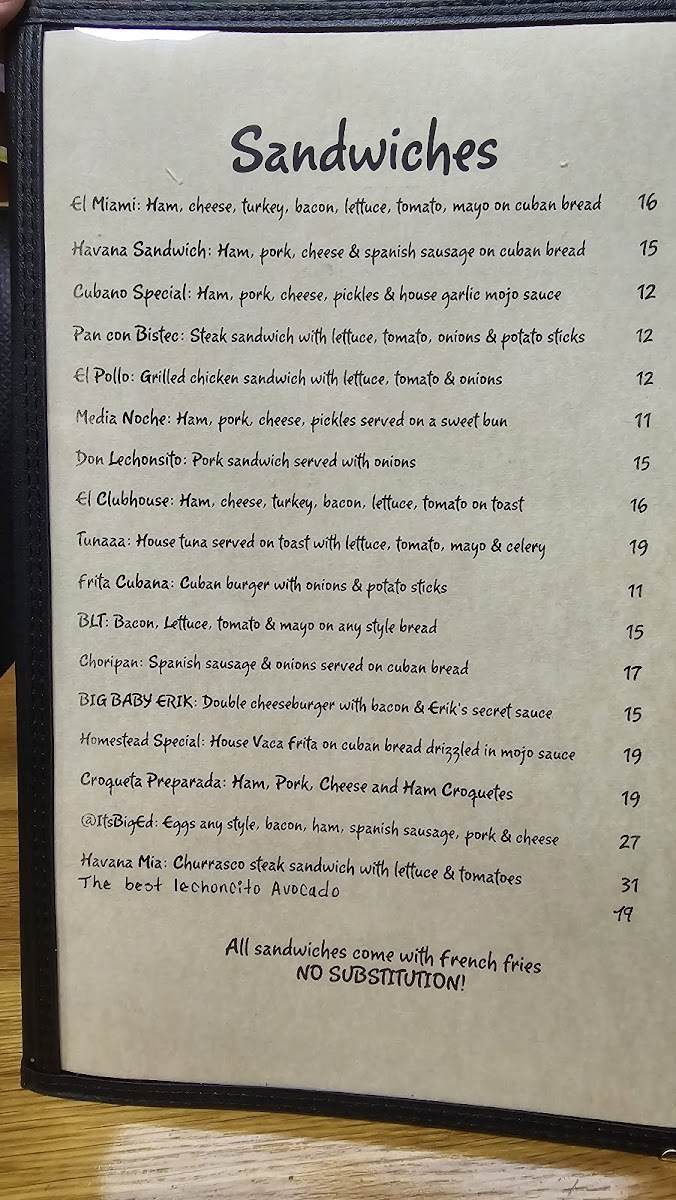 Sandwiches
El Miami: Ham, cheese, turkey, bacon, lettuce, tomato, mayo on cuban bread 16
Havana Sandwich: Ham, pork, cheese & spanish sausage on cuban bread 15
Cubano Special: Ham, pork, cheese, pickles & house garlic mojo sauce 12
Pan con Bistec: Steak sandwich with lettuce, tomato, onions & potato sticks 12
El Pollo: Grilled chicken sandwich with lettuce, tomato & onions 12
Media Noche: Ham, pork, cheese, pickles served on a sweet bun 11
Don Lechonsito: Pork sandwich served with onions 15
El Clubhouse: Ham, cheese, turkey, bacon, lettuce, tomato on toast 16
Tunaaa: House tuna served on toast with lettuce, tomato, mayo & celery 19
Frita Cubana: Cuban burger with onions & potato sticks 11
BLT: Bacon, Lettuce, tomato & mayo on any style bread 15
Choripan: Spanish sausage & onions served on cuban bread 17
BIG BABY ERIK: Double cheeseburger with bacon & Erik's secret sauce 15
Homestead Special: House Vaca Frita on cuban bread drizzled in mojo sauce 19
Croqueta Preparada: Ham, Pork, Cheese and Ham Croquetes 19
@ItsBigEd: Eggs any style, bacon, ham, spanish sausage, pork & cheese 27
Havana Mia: Churrasco steak sandwich with lettuce & tomatoes 31
The best lechoncito Avocado 19
All sandwiches come with french fries
NO SUBSTITUTION!